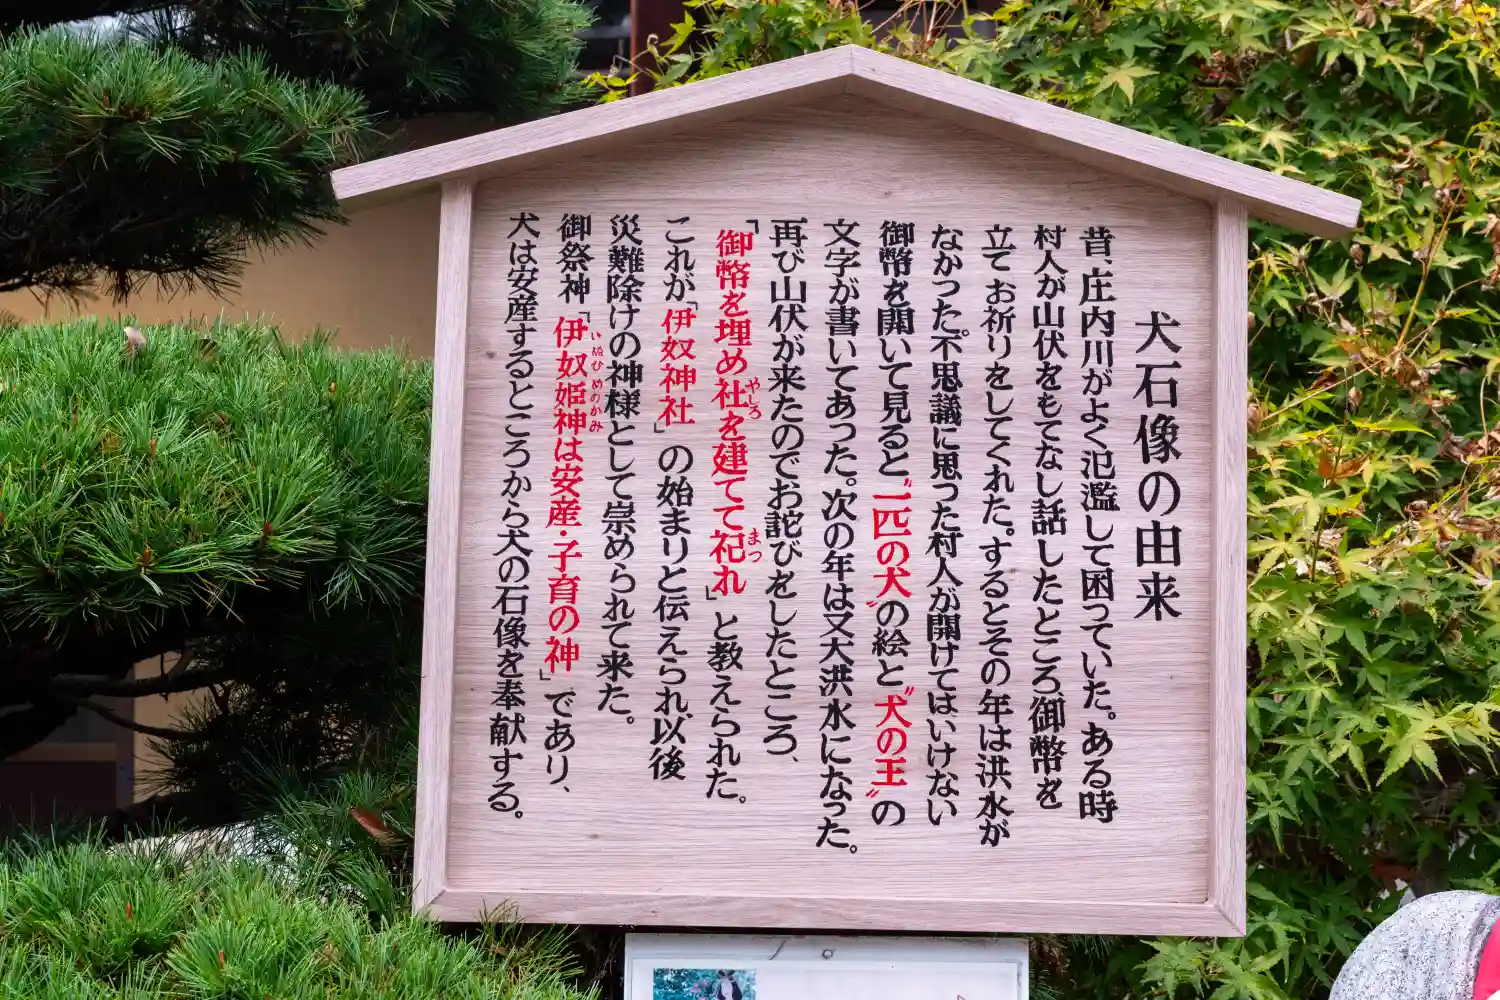 犬石像の由来
昔、庄内川がよく氾濫して困っていた。ある時
村人が山伏をもてなし話したところ、御幣を
立てお祈りをしてくれた。するとその年は洪水が
なかった。不思議に思った村人が開けてはいけない
御幣を開いて見ると〝一匹の犬〟の絵と〝犬の王〟の
文字が書いてあった。次の年は又大洪水になった。
再び山伏が来たのでお詫びをしたところ、
「御幣を埋め社を建てて祀れ」と教えられた。
やしろ
まつ
これが「伊奴神社」の始まりと伝えられ、以後
災難除けの神様として崇められて来た。
御祭神「伊奴姫神は安産・子育の神」であり、
いぬひめのかみ
犬は安産するところから犬の石像を奉献する。